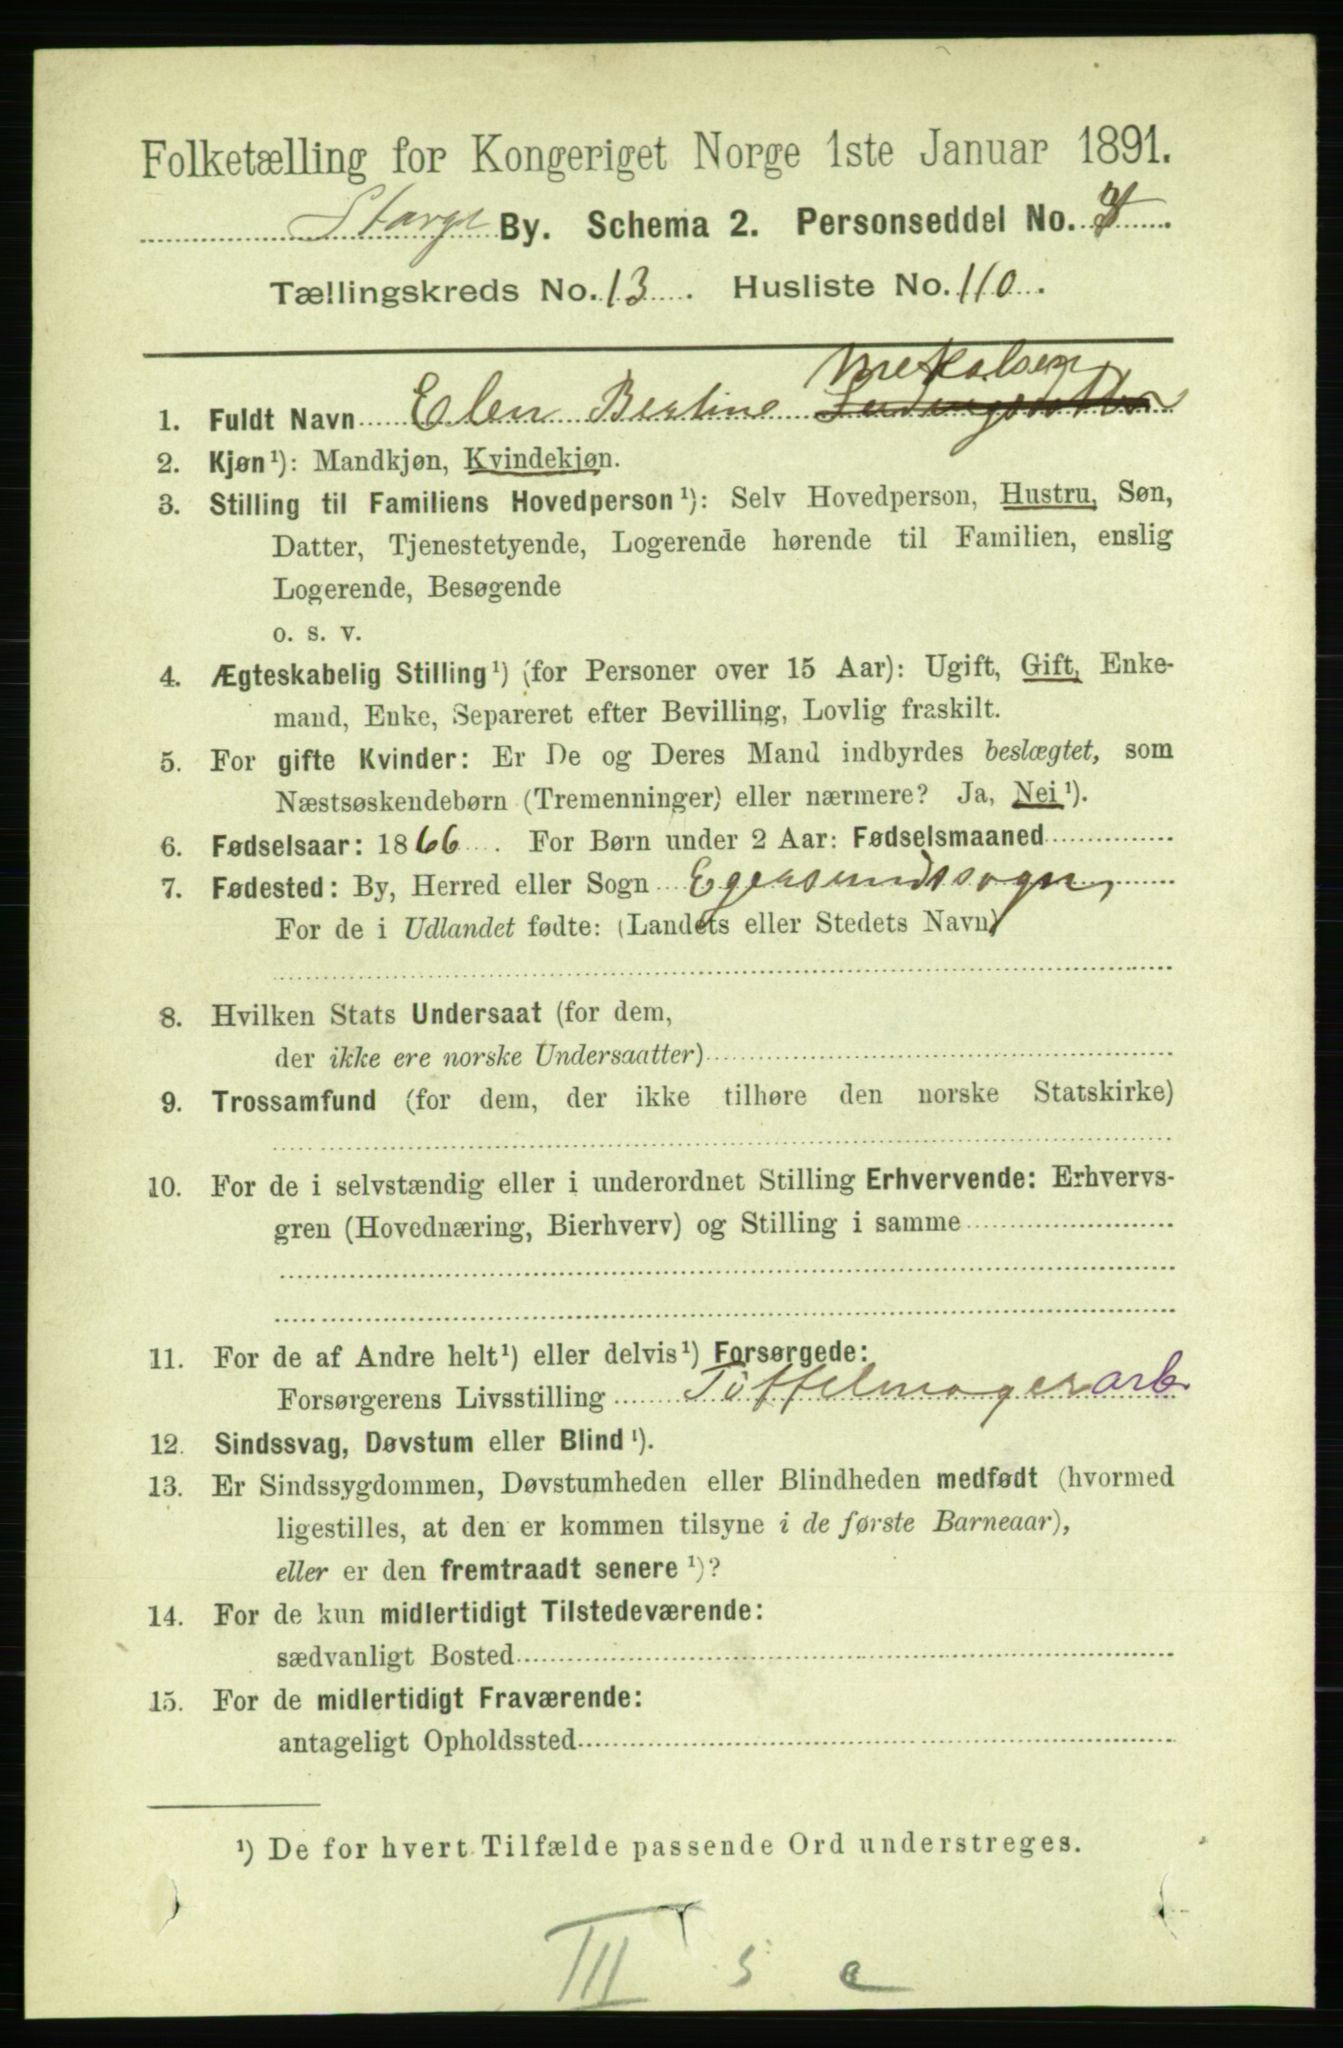 Folketælling for Kongeriget Norge 1ste Januar 1891.
By. Schema 2. Personseddel No.
Tællingskreds No. 13. Husliste No. 110.
Mekalsen
1. Fuldt Navn Elen Bertine
2. Kjøn¹): Mandkjøn, Kvindekjøn.
3. Stilling til Familiens Hovedperson¹): Selv Hovedperson, Hustru, Søn,
Datter, Tjenestetyende, Logerende hørende til Familien, enslig
Logerende, Besøgende
o. s. v.
4. Ægteskabelig Stilling¹) (for Personer over 15 Aar): Ugift, Gift, Enke-
mand, Enke, Separeret efter Bevilling, Lovlig fraskilt.
5. For gifte Kvinder: Er De og Deres Mand indbyrdes beslægtet, som
Næstsøskendebørn (Tremenninger) eller nærmere? Ja, Nei¹).
6. Fødselsaar: 1866. For Børn under 2 Aar: Fødselsmaaned
7. Fødested: By, Herred eller Sogn Egersundssogn,
For de i Udlandet fødte: (Landets eller Stedets Navn)
8. Hvilken Stats Undersaat (for dem,
der ikke ere norske Undersaatter)
9. Trossamfund (for dem, der ikke tilhøre den norske Statskirke)
10. For de i selvstændig eller i underordnet Stilling Erhvervende: Erhvervs-
gren (Hovednæring, Bierhverv) og Stilling i samme
11. For de af Andre helt¹) eller delvis¹) Forsørgede:
Forsørgerens Livsstilling Töffelmagerarb.
12. Sindssvag, Døvstum eller Blind¹).
13. Er Sindssygdommen, Døvstumheden eller Blindheden medfødt (hvormed
ligestilles, at den er kommen tilsyne i de første Barneaar),
eller er den fremtraadt senere¹)?
14. For de kun midlertidigt Tilstedeværende:
sædvanligt Bosted
15. For de midlertidigt Fraværende:
antageligt Opholdssted
¹) De for hvert Tilfælde passende Ord understreges.
III s e